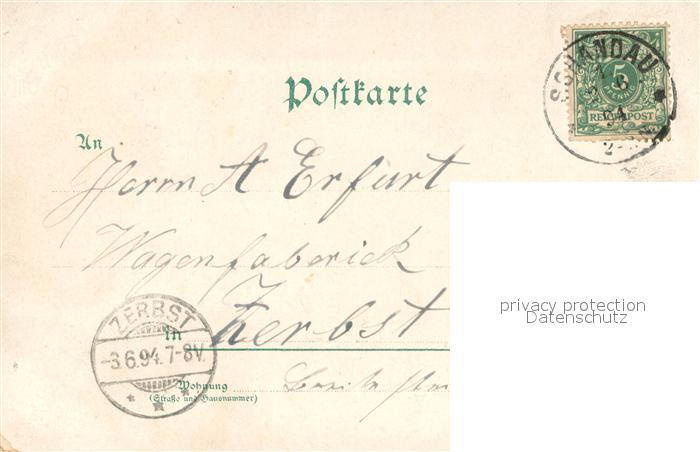 SCHANDAU
5
PFENNIG
REICHSPOST
94
Postkarte
An
Herrn A Erfurt
Wagenfaberick
privacy protection
Datenschutz
ZERBST
-3.6.94.7-8V.
in Zerbst
Wohnung
(Straße und Hausnummer)